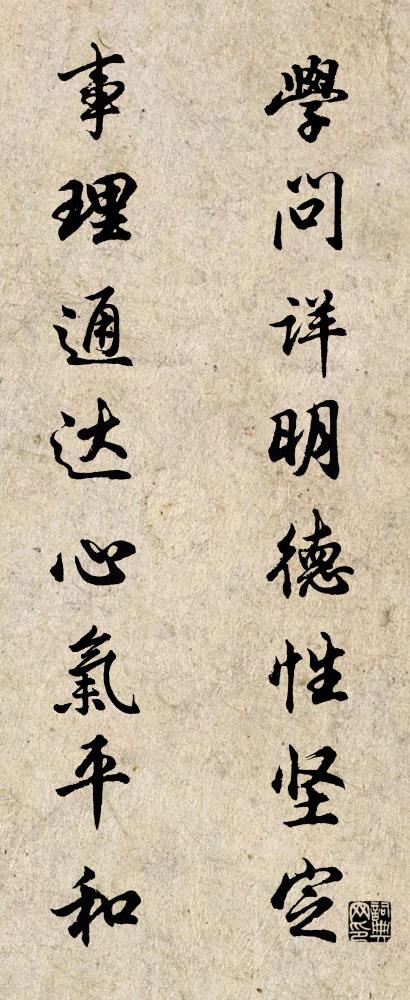 學問详明德性坚定
事理通达心氣平和
詞典网印